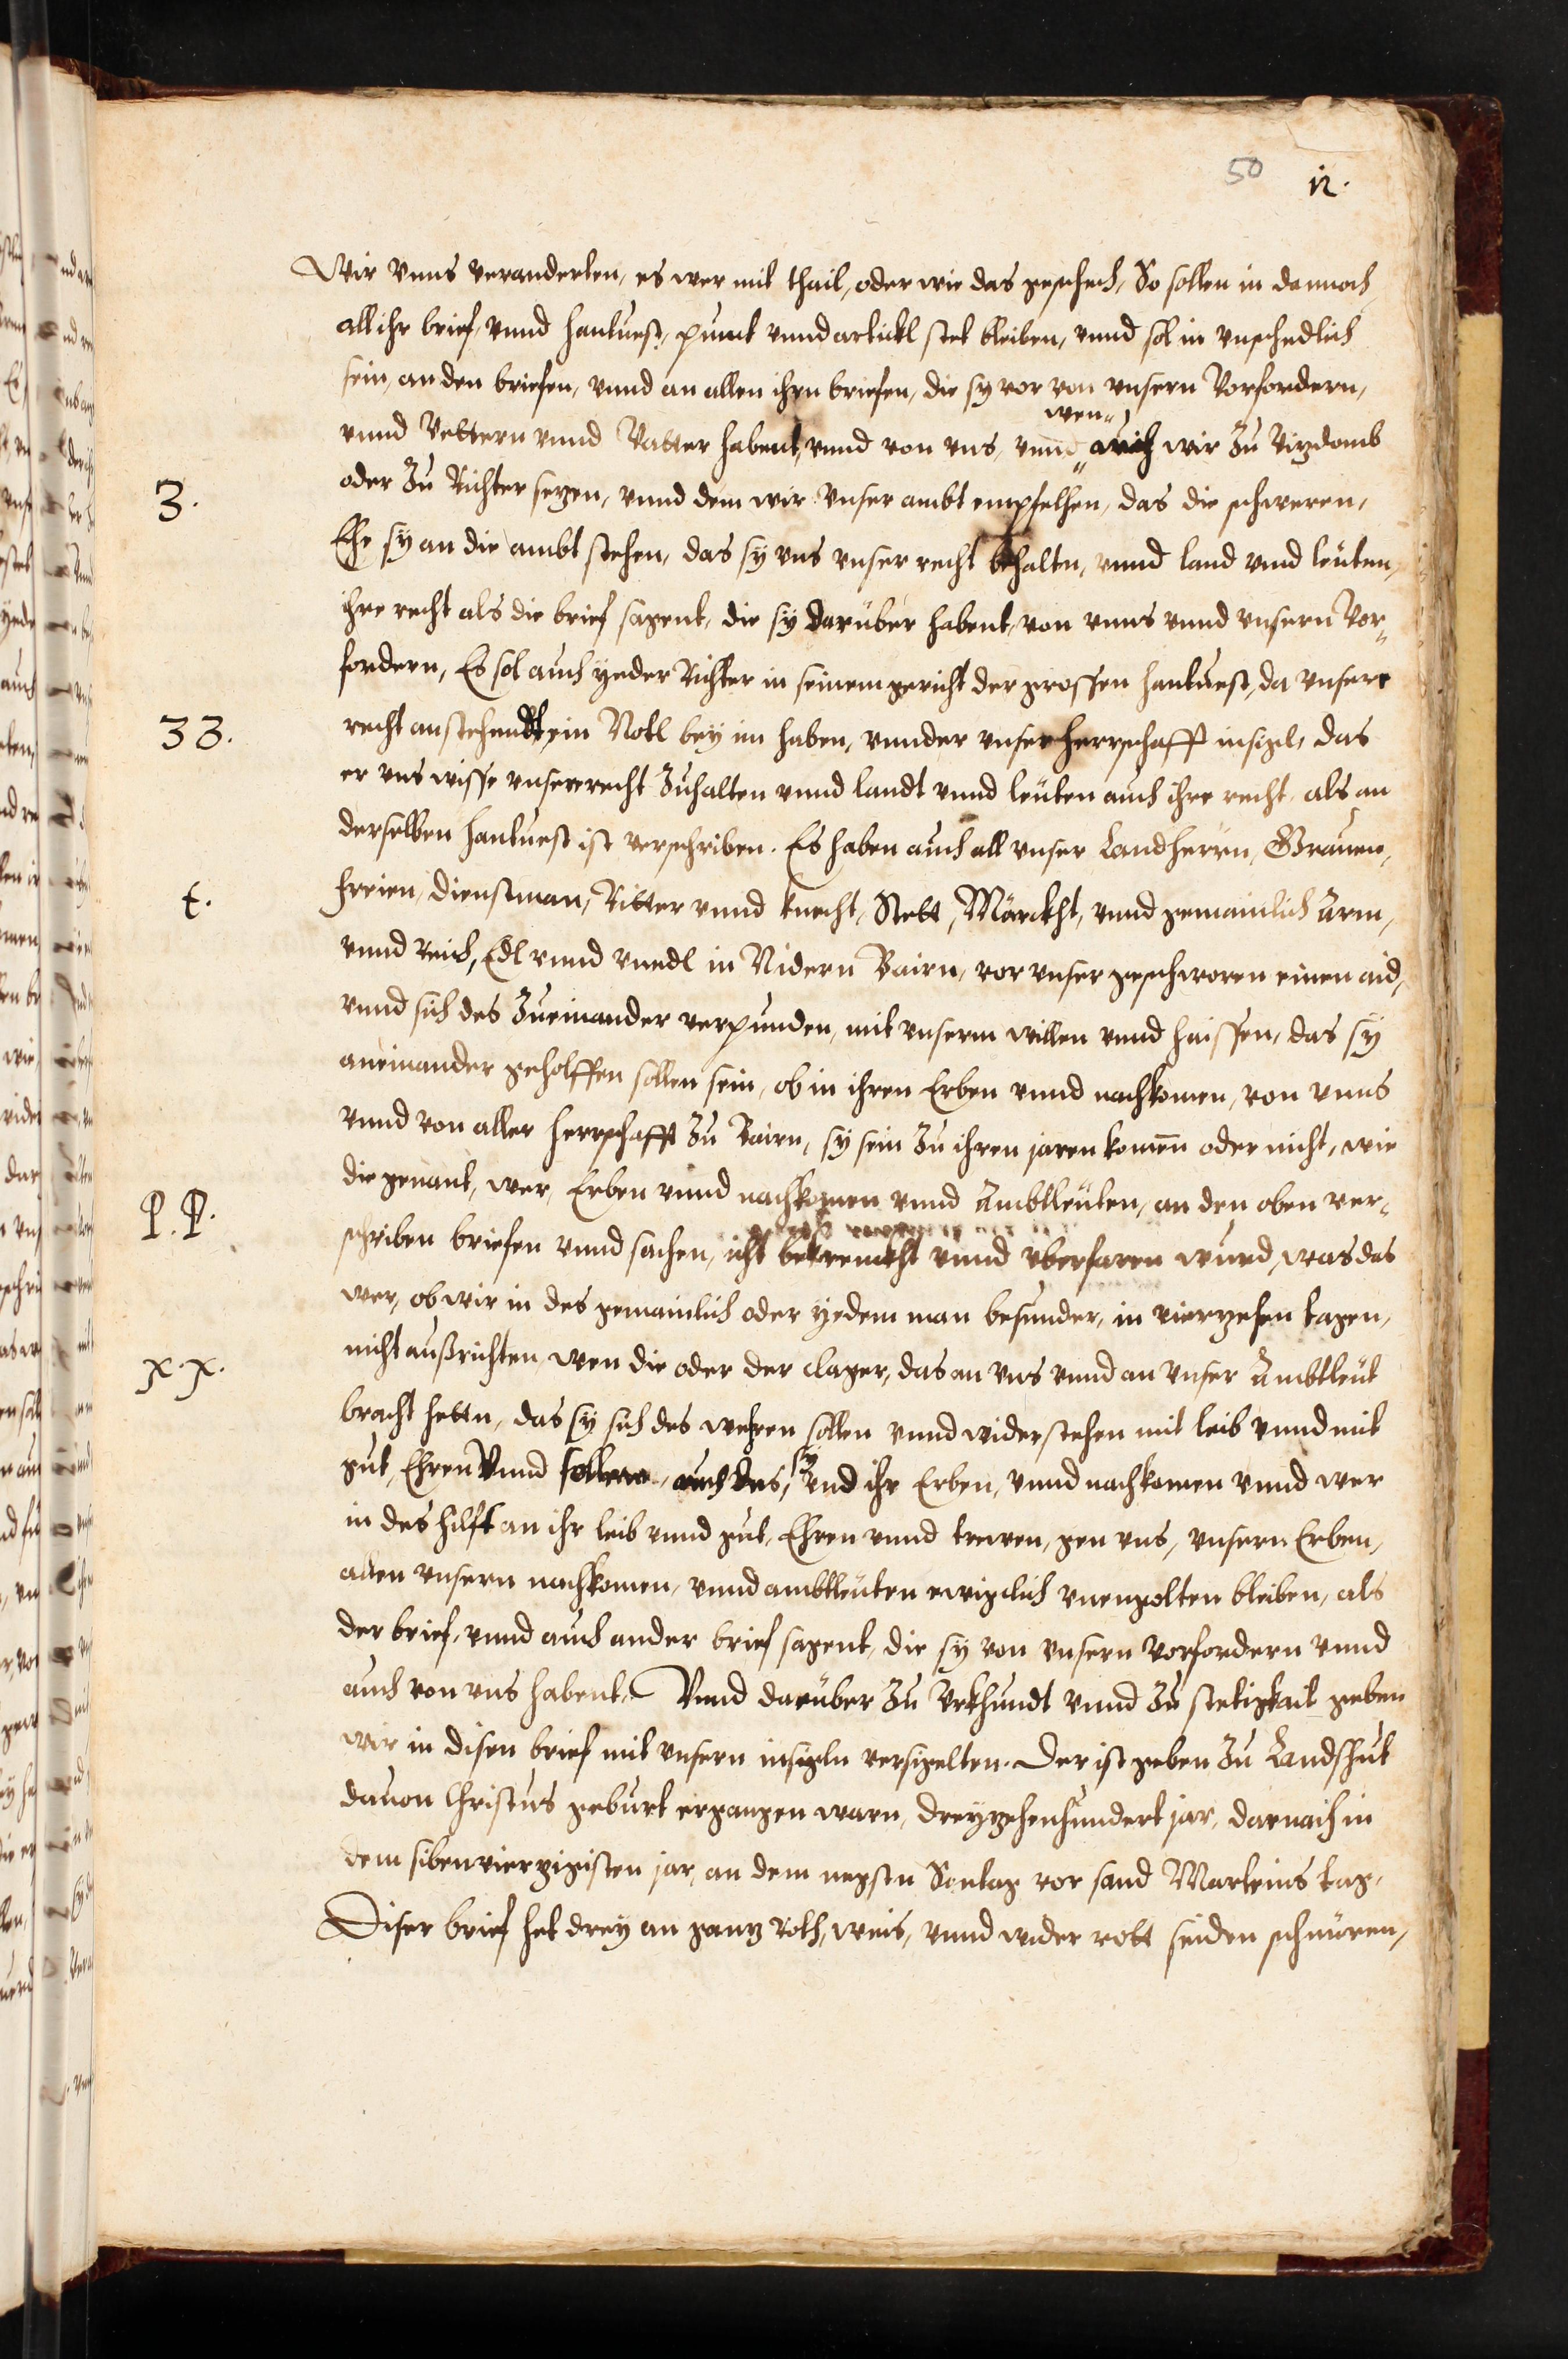 50 12.
Wir vnns veranderten, es wer mit thail, oder wie das geschech, So sollen in dannoch
all ihr brief vnnd hantuest, punct vnnd artickl stet bleiben, vnnd sol in vnschedlich
sein, an den briefen, vnnd an allen ihrn briefen, die sy vor von vnsern Vorfordern,
wen
vnnd Vettern vnnd Vatter habent, vnnd von vns, vnnd auch wir zu Vizdomb
3.
oder zu Richter sezen, vnnd dem wir vnser ambt empfelhen, das die schweren,
Ehe sy an die ambt stehen, das sy vns vnser recht behaltn, vnnd land vnd leüten,
ihre recht als die brief sagent, die sy darüber habent, von vnns vnnd vnsern Vor-
fordern, Es sol auch yeder Richter in seinem gericht der grossen hantuest, da vnsere
33.
recht anstehendt, ein Notl bey im haben, vnnder vnser herrschafft insigl, das
er vns wisse vnsere recht zuhalten vnnd landt vnnd leüten auch ihre recht, als an
derselben hantuest ist verschriben. Es haben auch all vnser Landherrn, Grauen,
t.
freien, dienstman, Ritter vnnd knecht, Stett, Märckht, vnnd gemainlich Arm,
vnnd Reich, Edl vnnd vnedl in Nidern Bairn, vor vnser geschworen einen aid,
vnnd sich des zueinander verpunden, mit vnserm willen vnnd haissen, das sy
aneinander geholffen sollen sein, ob in ihren Erben vnnd nachkomen, von vnns
vnnd von aller herrschafft zu Bairn, sy sein zu ihren jaren komen oder nicht, wie
die genant, wer, Erben vnnd nachkomen vnnd Ambtleüten, an den oben ver-
P. P.
schriben briefen vnnd sachen, icht bekrenckht vnnd vberfaren wurd, was das
wer, ob wir in des gemainlich oder yedem man besunder, in vierzehen tagen,
x. x.
nicht außrichten, wen die oder der clager, das an vns vnnd an vnser Ambtleüt
bracht hettn, das sy sich des wehren sollen vnnd widerstehen mit leib vnnd mit
sy
gut, Ehren Vnnd sollen auch des, vnd ihr Erben, vnnd nachkomen vnnd wer
in des hilft an ihr leib vnnd gut, Ehren vnnd trewen, gen vns, vnsern Erben,
allen vnsern nachkomen, vnnd ambtleüten ewigclich vnengolten bleiben, als
der brief, vnnd auch ander brief sagent, die sy von vnsern vorfordern vnnd
auch von vns habent. Vnnd darüber zu Vrkhundt vnnd zu stetigkait geben
wir in disen brief mit vnsern insigln versigelten. Der ist geben zu Landshut
dauon Christus geburt ergangen warn, dreyzehenhundert jar, darnach in
dem sibenvierzigisten jar, an dem negstn Sontag vor sand Marteins tag.
Diser brief het drey an ganz roth, weis, vnnd wider rott seiden schnüren,